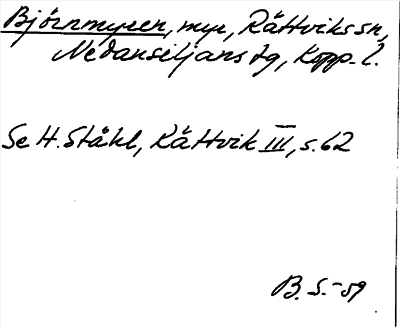 Björnmyren, myr, Rättviks sn,
Nedansiljans tg, Kopp. l.
Se H. Ståhl, Rättvik III, s. 62
B. S. -59